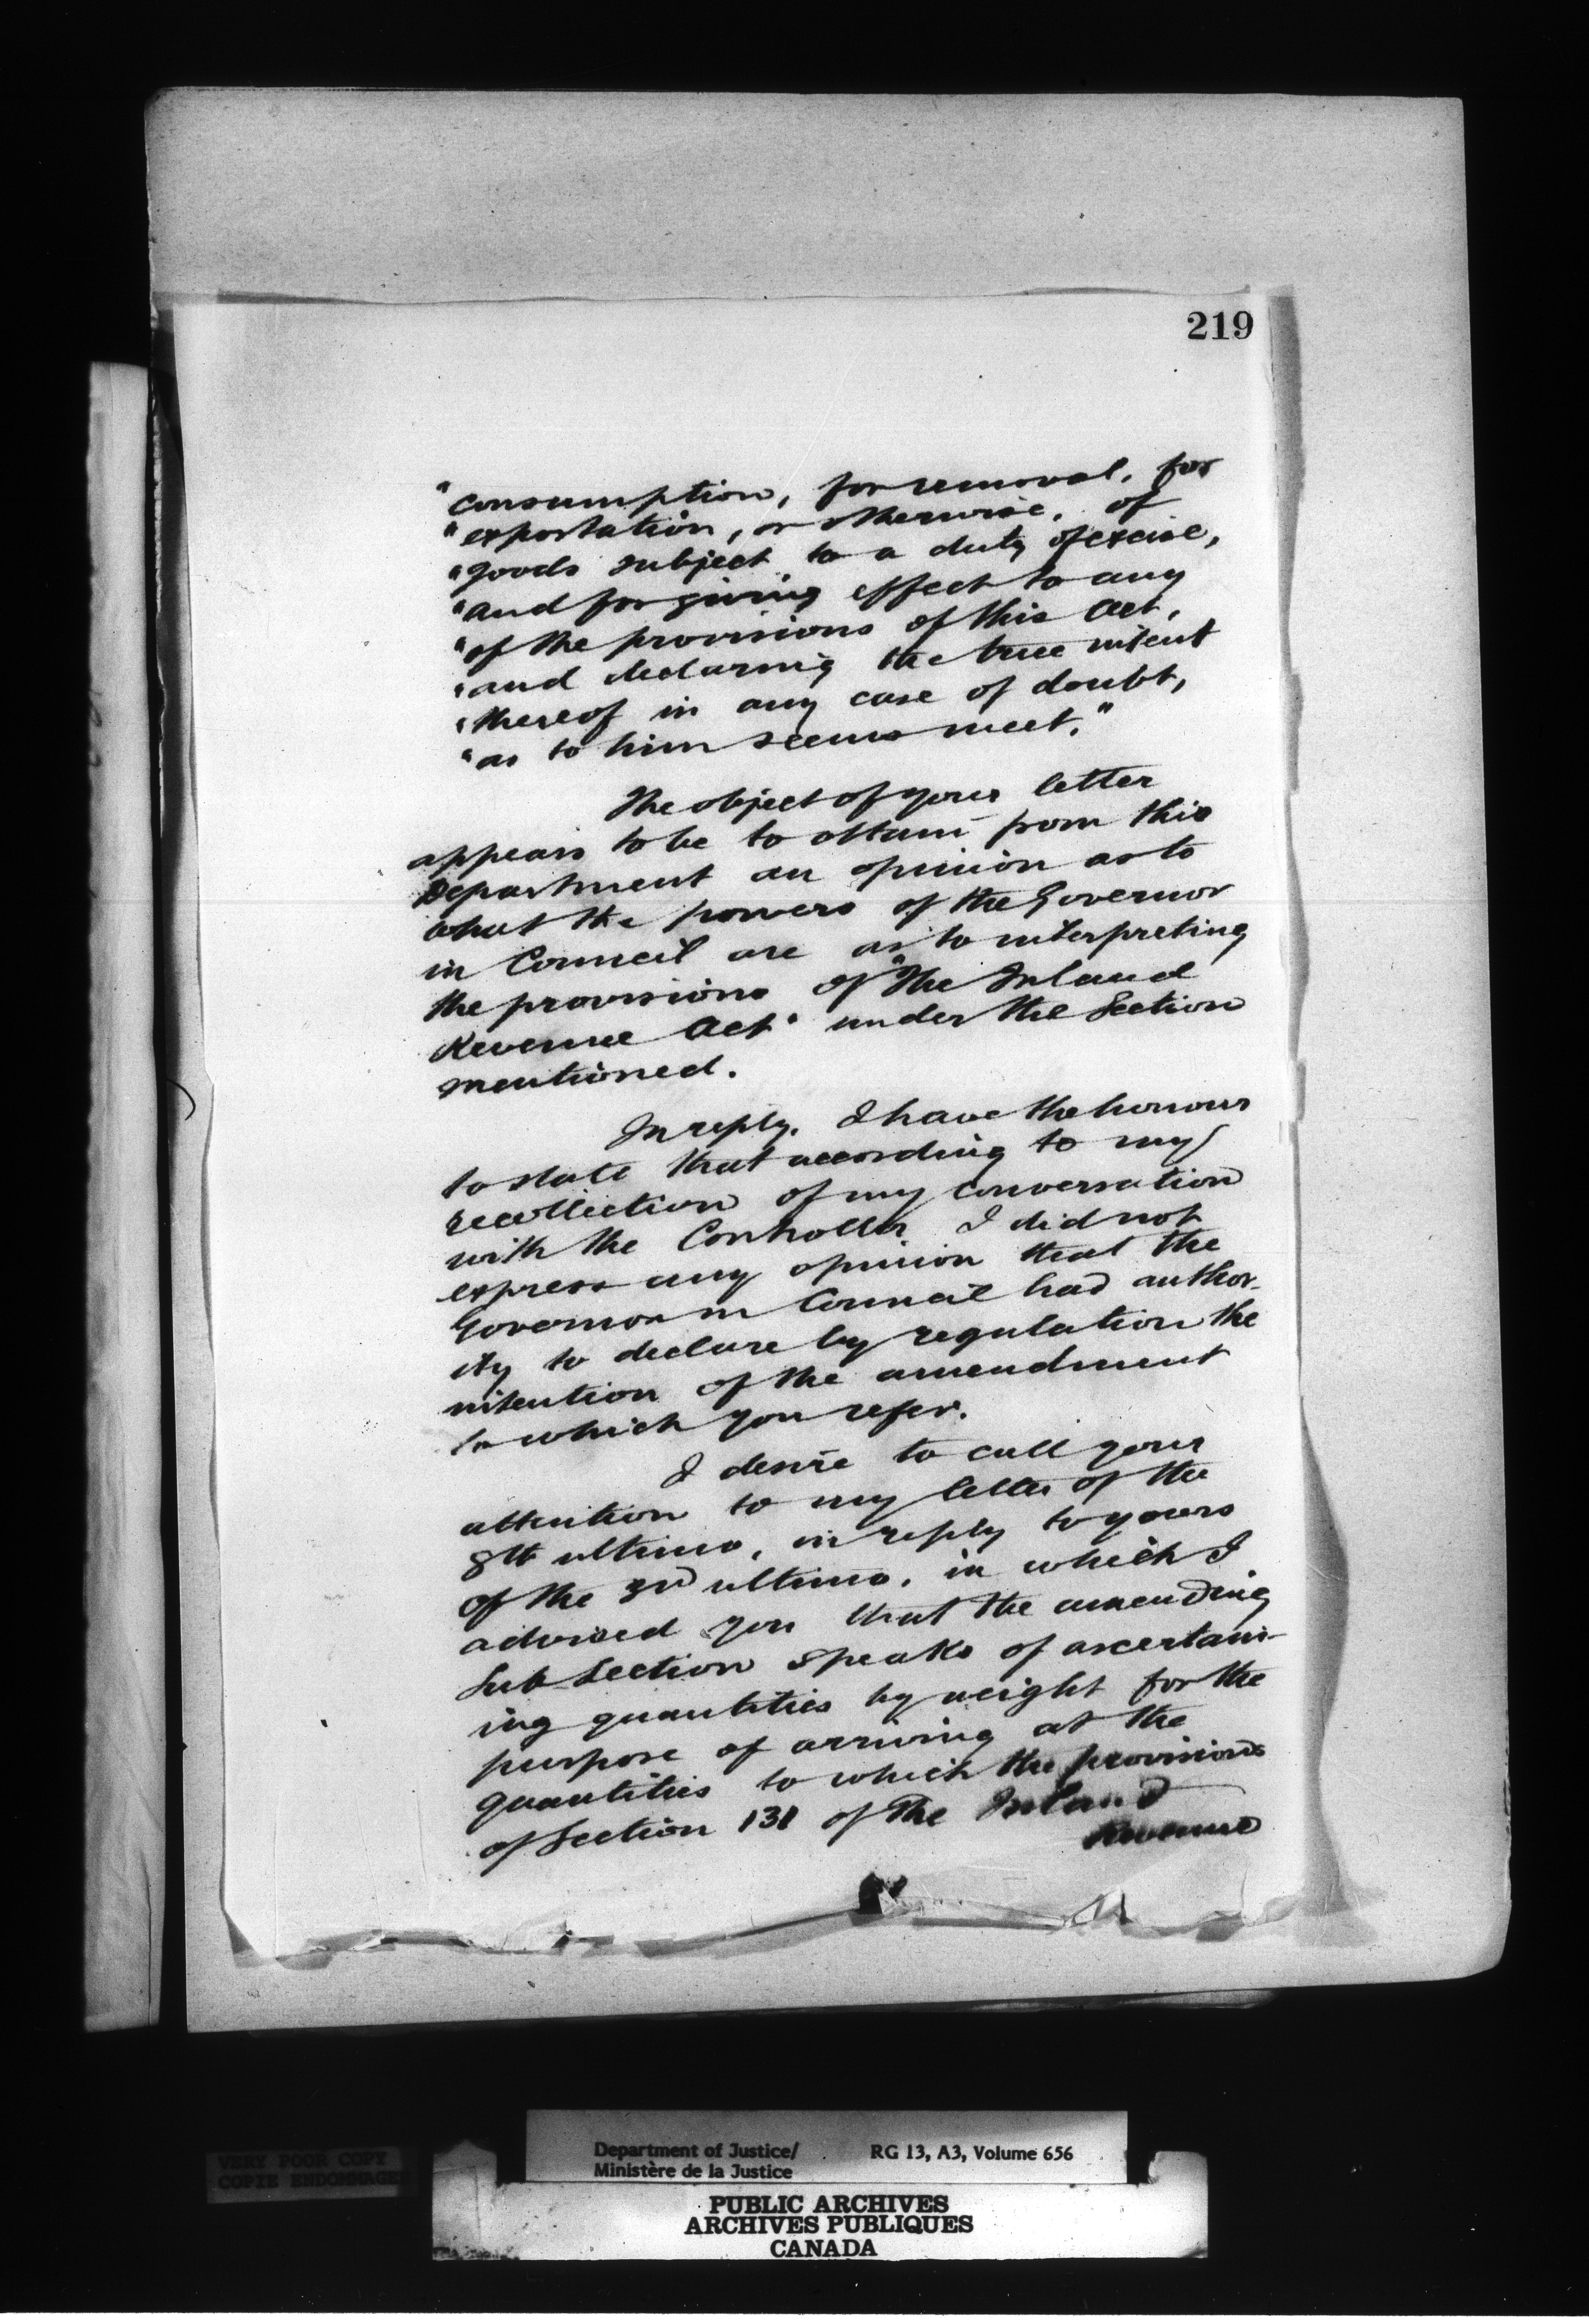 219
"consumption, for removal, for
"exportation, or otherwise, of
"goods subject to a duty of excise,
"and for giving effect to any
"of the provisions of this Act,
"and declaring the true intent
"thereof in any case of doubt,
"as to him seems meet."
The object of your letter
appears to be to obtain from this
Department an opinion as to
what the powers of the Governor
in Council are as to interpreting
the provisions of "The Inland
Revenue Act" under the Section
mentioned.
In reply, I have the honour
to state that according to my
recollection of my conversation
with the Controller I did not
express any opinion that the
Governor in Council had author-
ity to declare by regulation the
intention of the amendment
to which you refer.
I desire to call your
attention to my letter of the
8th ultimo, in reply to yours
of the 3rd ultimo, in which I
advised you that the amending
Sub-Section speaks of ascertain-
ing quantities by weight for the
purpose of arriving at the
quantities to which the provisions
of Section 131 of The Inland
Revenue
VERY POOR COPY
COPIE ENDOMMAGEE
Department of Justice/ RG 13, A3, Volume 656
Ministère de la Justice
PUBLIC ARCHIVES
ARCHIVES PUBLIQUES
CANADA